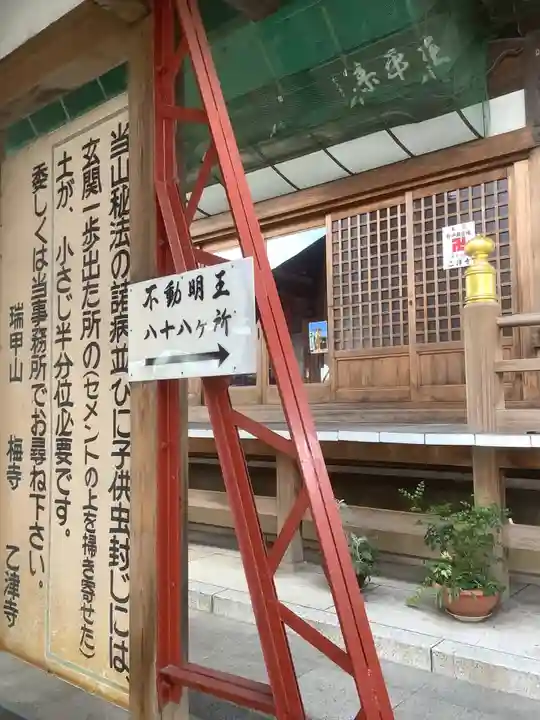 当山秘法の諸病並びに子供虫封じには、
玄関一歩出た所の(セメントの上を掃き寄せた)
土が、小さじ半分位必要です。
委しくは当事務所でお尋ね下さい。
瑞甲山 梅寺 乙津寺
不動明王
八十八ヶ所